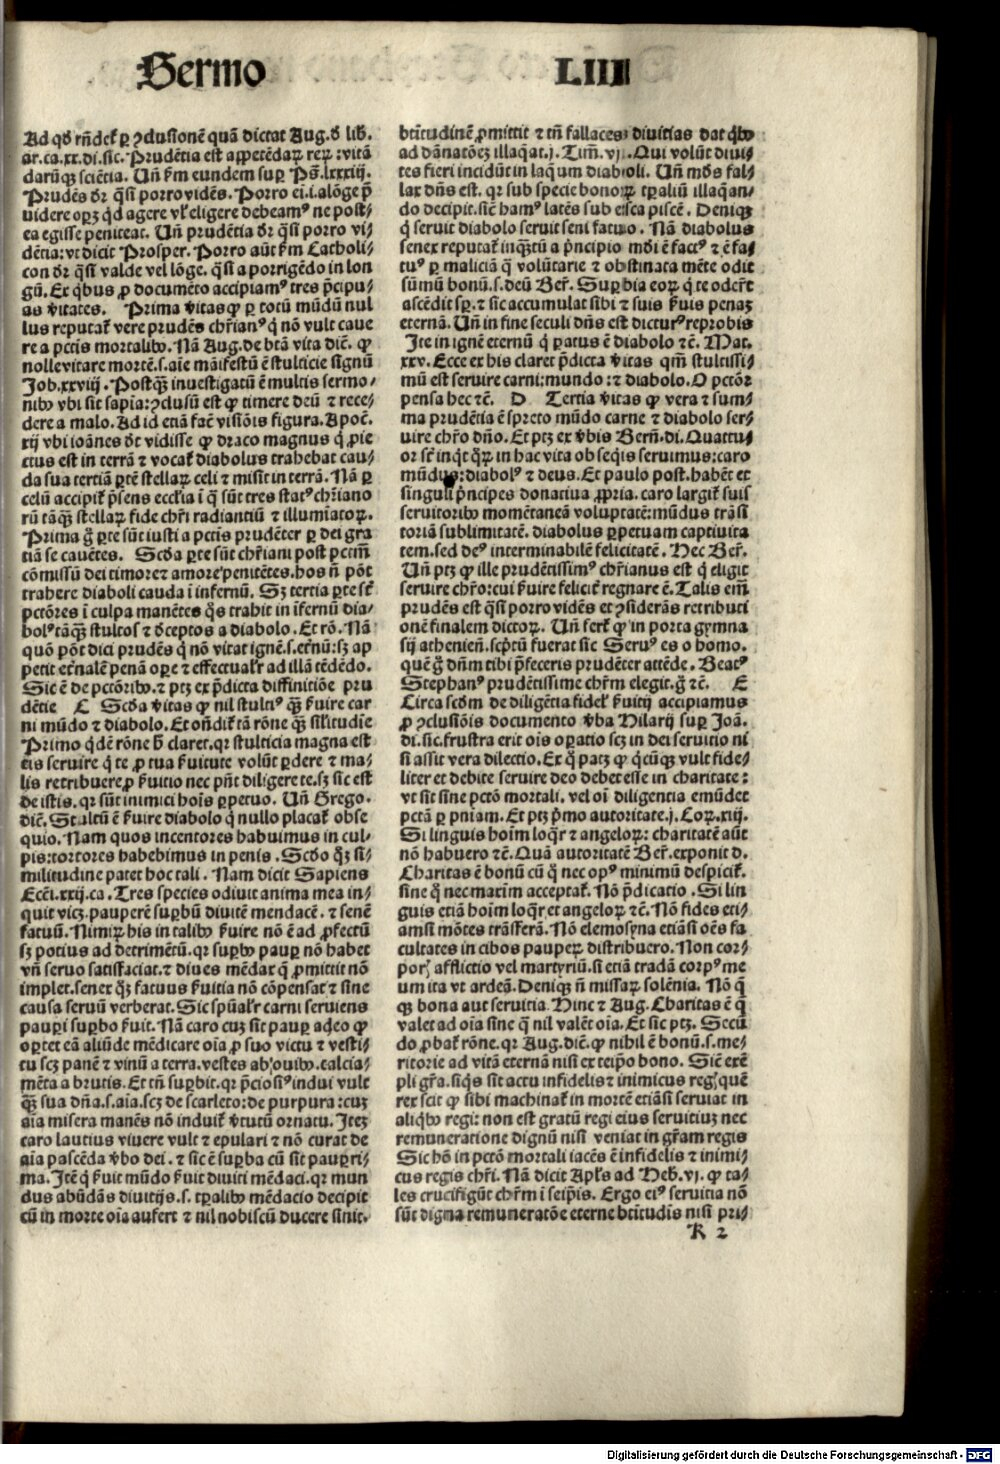 Sermo LIIII
Ad qḋ rñdet᷑ ꝑ ꝯclusionē quā dictat Aug. ḋ lib.
ar. ca. xx. di. sic. Prudētia est appetēdaꝝ reꝝ : vitā
darūqꝫ sciētia. Uñ ẜm eundem suꝑ Ps̃. lxxxiij.
Prudēs ḋr q̃si porro vidēs. Porro ei. i. a lōge p̃
videre oꝑꝫ qḋ agere vl᷑ eligere debeamꝰ ne post/
ea egisse peniteat. Uñ prudētia ḋr q̃si porro vi/
dētia: vt dicit Prosper. Porro aūt ẜm Catholi/
con ḋr q̃si valde vel lōge. q̃si a porrigēdo in lon
gū. Ex qͥbus ꝓ documēto accipiamꝰ tres p̃cipu/
as v̓itates. Prima v̓itas ꝙ ꝑ totū mūdū nul
lus reputat᷑ vere prudēs chr̃ianꝰ qͥ nō vult caue
re a pctīs mortalibꝰ. Nā Aug. de btā vita diē. ꝙ
nolle vitare mortē. s. aīe māifestū ē stulticie signū
Job. xxviij. Postqꝫ̄ inuestigatū ē multis sermo/
nibꝰ vbi sit sapīa: ꝯclusū est ꝙ timere deū ⁊ rece/
dere a malo. Ad id etiā fac̃ visiōis figura. Apoc̄.
xij vbi ioānes ḋt vidisse ꝙ draco magnus qͥ ꝓie
ctus est in terrā ⁊ vocat᷑ diabolus trahebat cau/
da sua tertiā ꝑtē stellaꝝ celi ⁊ misit in terrā. Nā ꝑ
celū accipit᷑ p̃sens ecclīa ī q̄ sūt tres statꝰ chr̃iano
rū tāqꝫ̄ stellaꝝ fide chr̃i radiantiū ⁊ illumīatoꝝ.
Prima g̊ ꝑte sūt iusti a pctīs prudēter ꝑ dei gra
tiā se cauētes. Scḋa ꝑte sūt chr̃iani post pctm̄
cōmissū dei timore ⁊ amore penitētes. hos ñ pōt
trahere diaboli cauda ī infernū. Sꝫ tertia ꝑte sūt
pctōres ī culpa manētes q̊s trahit in īfernū dia/
bolꝰ tāqꝫ̄ stultos ⁊ ḋceptos a diabolo. Et rō. Nā
quō pōt dici prudēs qͥ nō vitat ignē. s. et̃nū: sꝫ ap
petit et̃nalē penā oꝑe ⁊ effectualr̃ ad illā tēdēdo.
Sic ē de pctōribꝰ. ⁊ ptꝫ ex p̃dicta diffinitiōe pru
dētie C Scḋa v̓itas ꝙ nil stultiꝰ qꝫ̄ ẜuire car
ni mūdo ⁊ diabolo. Et oñdit᷑ tā rōne qꝫ̄ sil̓itudīe
Primo qͥdē rōne h̄ claret. qꝛ stulticia magna est
eis seruire qͥ te ꝓ tua ẜuitute volūt ꝑdere ⁊ ma/
lis retribuere ꝓ ẜuitio nec pn̄t diligere te. sꝫ sic est
de istis. qꝛ sūt inimici hoīs ꝑpetuo. Uñ Grego.
diē. Stultū ē ẜuire diabolo qͥ nullo placat᷑ obse
quio. Nam quos incentores habuimus in cul/
pis: tortores habebimus in penis. Scḋo qꝫ si/
militudine patet hoc tali. Nam dicit Sapiens
Ecci. xxij. ca. Tres species odiuit anima mea in/
quit vicꝫ. pauperē suꝑbū diuitē mendacē. ⁊ senē
fatuū. Nimiꝝ his in talibꝰ ẜuire nō ē ad ꝓfectū
sꝫ potius ad detrimētū. qꝛ suꝑbꝰ pauꝑ nō habet
vñ seruo satisfaciat. ⁊ diues mēdax qͥ ꝓmittit nō
implet. senex qꝫ fatuus ẜuitia nō cōpensat ⁊ sine
causa seruū verberat. Sic spūalr̃ carni seruiens
pauꝑi suꝑbo ẜuit. Nā caro cuꝫ sit pauꝑ adeo ꝙ
oꝑtet eā aliūde mēdicare oīa ꝓ suo victu ⁊ vesti/
tu scꝫ panē ⁊ vinū a terra. vestes ab ouibꝰ. calcia/
mēta a brutis. Et tñ suꝑbit. qꝛ p̃cio siꝰ indui vult
qꝫ̄ sua dñā. s. aīa. scꝫ de scarleto: de purpura: cuꝫ
aīa misera manēs nō induit᷑ v̓tutū ornatu. Iteꝫ
caro lautius viuere vult ⁊ epulari ⁊ nō curat de
aīa pascēda v̓bo dei. ⁊ sic ē suꝑba cū sit pauꝑri/
ma. Itē qͥ ẜuit mūdo ẜuit diuiti mēdaci. qꝛ mun
dus abūdās diuitijs. s. tꝑalibꝰ mēdacio decipit
cū in morte oīa aufert ⁊ nil nobiscū ducere sinit.
btītudinē ꝓmittit ⁊ tñ fallaces diuitias dat qͥbꝰ
ad dānatōeꝫ illaq̄at. j. Tim̄. vj. Qui volūt diui/
tes fieri incidūt in laq̄um diaboli. Uñ mūdus fal/
lax dñs est. qꝛ sub specie bonoꝝ tꝑaliū illaq̄an/
do decipit. sic̄ hamꝰ latēs sub esca piscē. Deniqꝫ
qͥ seruit diabolo seruit seni fatuo. Nā diabolus
senex reputat᷑ inqꝫ̄tū a p̃ncipio mūdi ē factꝰ ⁊ ē fa/
tuꝰ ꝑ maliciā q̄ volūtarie ⁊ obstinata mēte odit
sūmū bonū. s. deū Ber̃. Suꝑbia eoꝝ qͥ te oder̃t
ascēdit sꝑ. ⁊ sic accumulat sibi ⁊ suis ẜuis penaꝫ
eternā. Uñ in fine seculi dñs est dicturꝰ reprobis
Ite in ignē eternū qͥ ꝑatus ē diabolo ⁊c̄. Mat.
xxv. Ecce ex his claret p̃dicta v̓itas qm̄ stultissi/
mū est seruire carni: mundo: ⁊ diabolo. O pctōr
pensa hec ⁊c̄. D Tertia v̓itas ꝙ vera ⁊ sum/
ma prudētia ē spreto mūdo carne ⁊ diabolo ser/
uire chr̃o dño. Et ptꝫ ex v̓bis Bern̄. di. Quattu/
or sūt inqͥt qͥbꝰ in hac vita obseqͥs seruimus: caro
mūdus: diabolꝰ ⁊ deus. Et paulo post. habēt et
singuli p̃ncipes donatiua ꝓpria. caro largit᷑ suis
seruitoribꝰ momētaneā voluptatē: mūdus trāsi
toriā sublimitatē. diabolus ꝑpetuam captiuita
tem. sed deꝰ interminabilē felicitatē. Hec Ber̃.
Uñ ptꝫ ꝙ ille prudētissimꝰ chr̃ianus est qͥ eligit
seruire chr̃o: cui ẜuire feliciter regnare ē. Talis em̄
prudēs est q̃si porro vidēs et ꝯsiderās retributi
onē finalem dictoꝝ. Uñ fert᷑ ꝙ in porta gymna
sij athenieñ. sc̓ptū fuerat sic Seruꝰ es o homo.
quē g̊ dñm tibi p̃feceris prudēter attēde. Beatꝰ
Stephanꝰ prudētissime chr̃m elegit. g̊ ⁊c̄. E
Circa scḋm de diligētia fidelꝭ ẜuitij accipiamus
ꝓ ꝯclusiōis documento v̓ba Hilarij suꝑ Joā.
di. sic. frustra erit oīs oꝑatio scꝫ in dei seruitio ni
si assit vera dilectio. Ex q̊ patꝫ ꝙ qͥcūqꝫ vult fide/
liter et debite seruire deo debet esse in charitate:
vt sit sine pctō mortali. vel oī diligentia emūdet
pctā ꝑ pn̄iam. Et ptꝫ p̓mo autoritate. j. Coꝝ. xiij.
Si linguis hoīm loqͣr ⁊ angeloꝝ: charitatē aūt
nō habuero ⁊c̄. Quā autoritatē Ber̃. exponit d.
Charitas ē bonū cū q̊ nec opꝰ minimū despicit᷑.
sine q̊ nec maxīm acceptat᷑. Nō p̃dicatio. Si lin
guis etiā hoīm loqͣr et angeloꝝ ⁊c̄. Nō fides eti/
amsi mōtes trāsferā. Nō elemosyna etiāsi oēs fa
cultates in cibos pauperꝝ distribuero. Non cor/
porꝭ afflictio vel martyriū. si etiā tradā corpꝰ me
um ita vt ardeā. Deniqꝫ ñ missaꝝ solēnia. Nō q̄
qꝫ bona aut seruitia. Hinc ⁊ Aug. Charitas ē q̄
valet ad oīa sine q̄ nil valēt oīa. Et sic ptꝫ. Secū
do ꝓbat᷑ rōne. qꝛ Aug. diē. ꝙ nihil ē bonū. s. me/
ritorie ad vitā eternā nisi ex teip̄o bono. Sic̄ exē
pli gr̃a. siqͥs sit actu infidelis ⁊ inimicus regꝭ quē
rex scit ꝙ sibi machinat᷑ in mortē etiāsi seruiat in
aliqͥbꝰ regi: non est gratū regi eius seruitiuꝫ nec
remuneratione dignū nisi veniat in gr̃am regis
Sic hō in pctō mortali iacēs ē infidelis ⁊ inimi/
cus regis chr̃i. Nā dicit Apl̓s ad Heb. vj. ꝙ ta/
les crucifigūt chr̃m ī seip̄is. Ergo eiꝰ seruitia nō
sūt digna remuneratōe eterne btītudīs nisi pri/
K 2
Digitalisierung gefördert durch die Deutsche Forschungsgemeinschaft - DFG